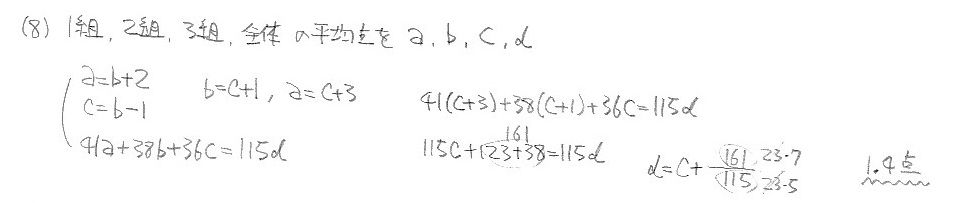 (8) 1組, 2組, 3組, 全体 の平均点を a, b, c, d
a=b+2
c=b-1
41a+38b+36c=115d
b=c+1, a=c+3
41(c+3)+38(c+1)+36c=115d
161
115c+123+38=115d
d=c+161/115
23·7
23·5
1.4点